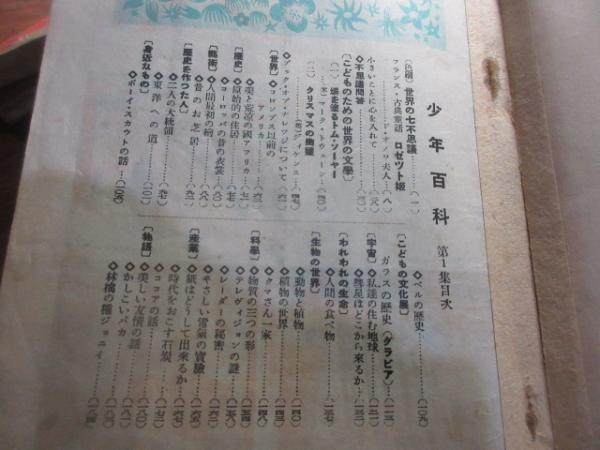 少年百科 第1集目次
(色刷) 世界の七不思議……(一)
フランス・古典童話 ロゼット姫
……ド・オノワ夫人…(八)
小さいことに心を入れて……(二八)
◇不思議問答……(三〇)
[こどものための世界の文學]
(一) 塀を塗るトム・ソーヤー
(米)マーク・トウェーン…(三四)
(二) クリスマスの幽霊
(英)ディケンス…(四七)
◇ブック・オブ・ナレッジについて…(六一)
[世界]
◇コロンブス以前の
アメリカ……(六三)
◇美と荒凉の國アフリカ…(七一)
[歷史]
◇原始的の住居……(七七)
◇ヨーロッパの昔の衣裳…(八〇)
[藝術]
◇人間最初の繪……(八六)
◇昔のお芝居……(九一)
[歷史を作つた人]
◇二人の大統領……
◇東洋への道……(九七)
[身近なもの]
◇ボーイ・スカウトの話…(一〇二)
◇ベルの歷史……(一〇九)
[こどもの文化展]
ガラスの歷史(グラビア)…(一一三)
[宇宙]
◇私達の住む地球……(一二一)
◇彗星はどこから來るか…(一三二)
[われわれの生命]
◇人間の食べ物……(一三七)
[生物の世界]
◇動物と植物……(一四〇)
◇植物の世界……(一四三)
◇クマさん一家……(一四八)
[科學]
◇物質の三つの形……(一五四)
◇テレヴィジョンの謎……(一五八)
◇レーダーの秘密……
◇やさしい電氣の實驗……
[産業]
◇紙はどうして出來るか…(一六五)
◇時代をおこす石炭……(一六七)
◇ココアの話……(一七二)
[物語]
◇美しい友情の話……
◇かしこいバカ……(一八一)
◇林檎の種ジョニイ……(一八四)